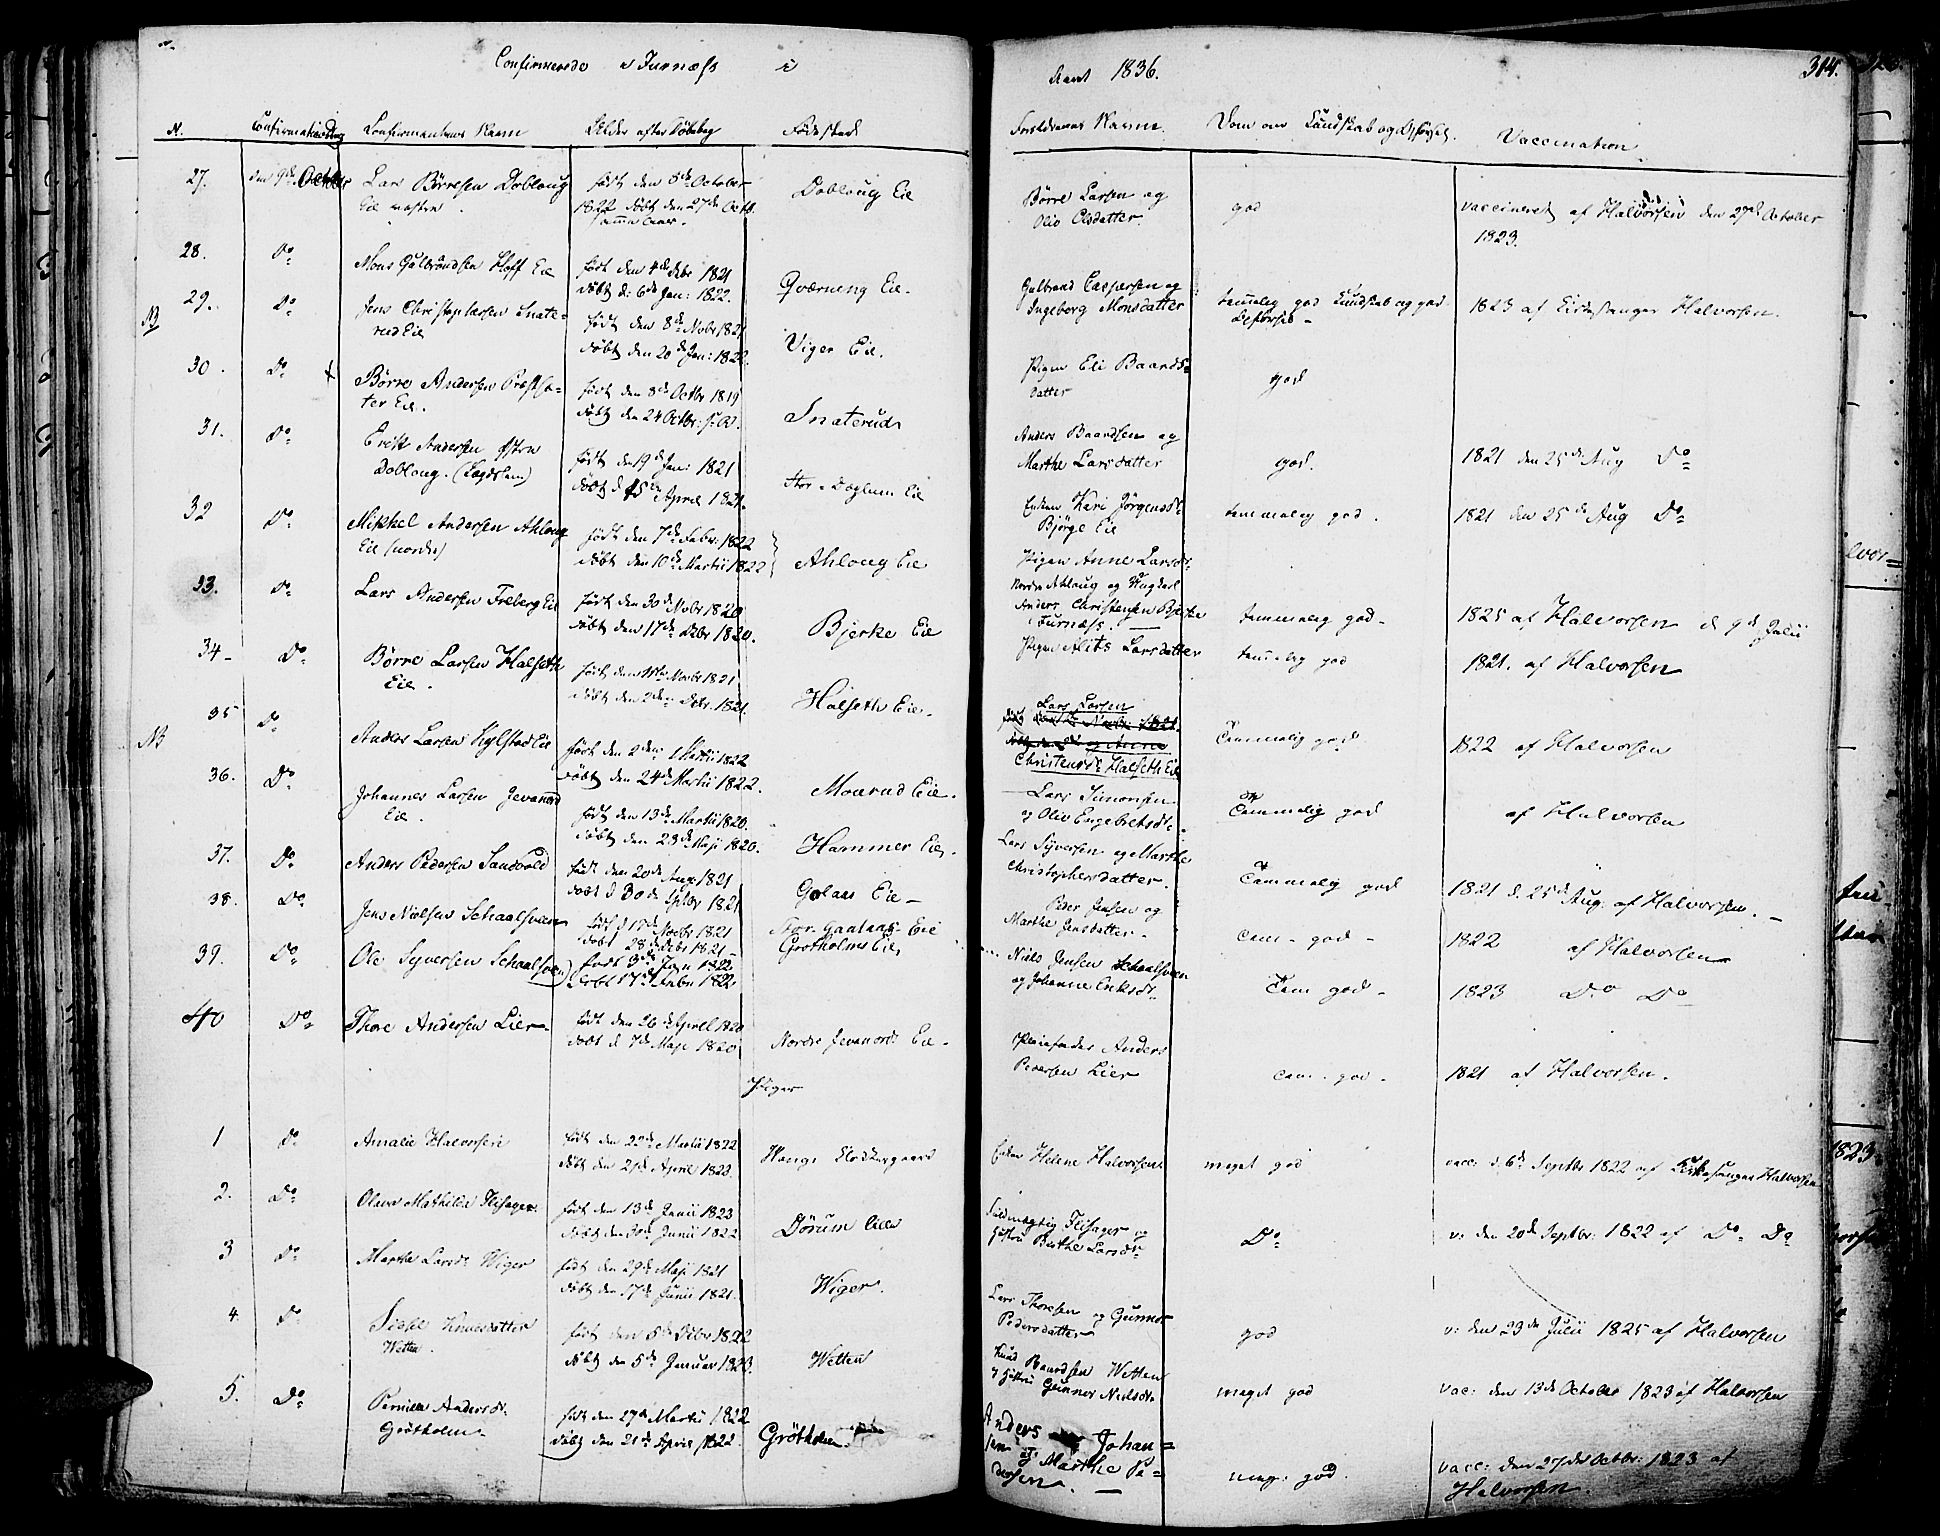 Confirmerede i Furnæss i
Aaret 1836.
314.
N.
Confirmations Dag
Confirmantens Navn
Alder efter Døbeseg
Fødested
Forældrenes Navne
Dom om Kundskab og Opførsel.
Vaccination
27.
den 9de October
Lars Børresen Dobloug
Eie vestre
født den 8de October
1822 døbt den 27de Octb.
samme Aar.
Dobloug Eie
Børre Larsen og
Olia Olsdatter.
god
vaccineret af Halvorsen den 27de October
1823.
28.
Do
Mons Gulbrandsen Hoff Eie
født den 4de Debr 1821
døbt d: 6de Jan: 1822.
Qværneng Eie.
Gulbrand Caspersen og
Ingeborg Monsdatter
temmelig god Kundskab og god
Opførsel
1823 af Kirkesanger Halvorsen.
NB
29.
Do
Jens Christophersen Snate-
rud Eie
født den 8de Novbr 1821
døbt den 20de Jan: 1822.
Viger Eie.
Pigen Eli Baards-
datter
god
30.
Do
Børre Andersen Præstsæ-
ter Eie.
født den 8de Octbr 1819
døbt den 24 Octbr. s. A.
Snaterud
Anders Baardsen og
Marthe Larsdatter
god.
1821 den 25de Aug Do
31.
Do
Erik Andersen østre
Dobloug. (Lagdslem)
født den 19de Jan: 1821
døbt d 15de April 1821.
Stor-Døglum Eie
Enken Kari Jørgensdt.
Bjørge Eie
temmelig god.
1821 den 25de Aug Do
32
Do
Mikkel Andersen Ahloug
Eie (nordre)
født den 7de Febr: 1822
døbt den 10de Martii 1822
Ahloug Eie
Pigen Anne Larsdt.
Nordre Ahloug og Ungkarl
Anders Christensen Bjerke
i Furnæss.
temmelig god
1825 af Halvorsen d 9de Julii
33.
Do
Lars Andersen Freberg Eie
født den 30de Novbr 1820
døbt den 17de Debr 1820.
Bjerke Eie
Pigen Alits Larsdatter
temelig god
1821. af Halvorsen
34
Do
Børre Larsen Halseth
Eie.
født den 11te Novbr 1821
døbt den 2den Debr. 1821.
Halseth Eie.
Lars Larsen
Christensdt. Halseth Eie
Temmelig god
1822 af Halvorsen
NB
35
Do
Anders Larsen Kylstad Eie
født den 2den Martii 1822
døbt den 24de Martii 1822.
Moarud Eie.
Lars Simonsen
og Oliv Engebretsdt.
Temmelig god
af Halvorsen
36.
Do
Johannes Larsen Jevanord
Eie.
født den 13de Martii 1820.
døbt den 23de Maji 1820.
Hammer Eie.
Lars Syversen og Marthe
Christophersdatter.
Temmelig god
1821 d. 25de Aug. af Halvorsen.
37.
Do
Anders Pedersen Sandvold
født den 20de Aug: 1821
døbt d 30de Septbr 1821
Golaas Eie
Peder Jensen og
Marthe Jensdatter
Tem. god
1822 af Halvorsen
38.
Do
Jens Nielsen Schaalsveen
født d 17de Novbr 1821
døbt 28de Debr 1821
Stor-Gaalaas Eie
Niels Jensen Schaalsveen
og Johanne Eriksdt.
Tem god
1823 Do Do
39.
Do
Ole Syversen Schaalsveen
født 3de Jan 1822
døbt 17de Febr 1822
Grøtholms Eie,
40
Do
Thore Andersen Lier
født den 26de April 1820
døbt d 7de Maji 1820
Nordre Jevanords Eie
Pleiefader Anders
Pedersen Lier
tem. god
1821 af Halvorsen.
Piger
1
Do
Amalie Halvorsen
født den 22de Martii 1822
døbt den 21de April 1822.
Hougs Klokkergaard
Enken Helene Halvorsen
meget god
vacc: d. 6te Septbr 1822 af Kirkesanger Halvorsen
2.
Do
Olava Mathilde Flisager
født den 13de Junii 1823
døbt den 30de Junii 1822
Dørum Eie
Fuldmægtig Flisager og
Hustru Birthe Larsdt.
Do
v: den 20de Septbr: 1822 af Do Do
3
Do
Marthe Larsdt. Wiger
født den 29de Maji 1821
døbt den 17de Junii 1821.
Wiger.
Lars Thoresen og Gunnor
Pedersdatter
god
v: den 29de Julii 1825 af Halvorsen
4.
Do
Sidsel Knudsdatter
Wetten.
født den 5de Debr 1822
døbt den 5de Januar 1823.
Wetten
Knud Baardsen Wetten
og Hustru Gunnor Nielsdt.
meget god
vac: den 13de October 1823 af Halvorsen
5.
Do
Pernille Andersdt.
Grøtholm.
født den 27de Martii 1822
døbt den 21de April 1822
Grøtholm.
Anders Johan-
sen og Marthe Pe-
dersen.
meg: god.
vacc: den 27de Octbr: 1823 af
Halvorsen.